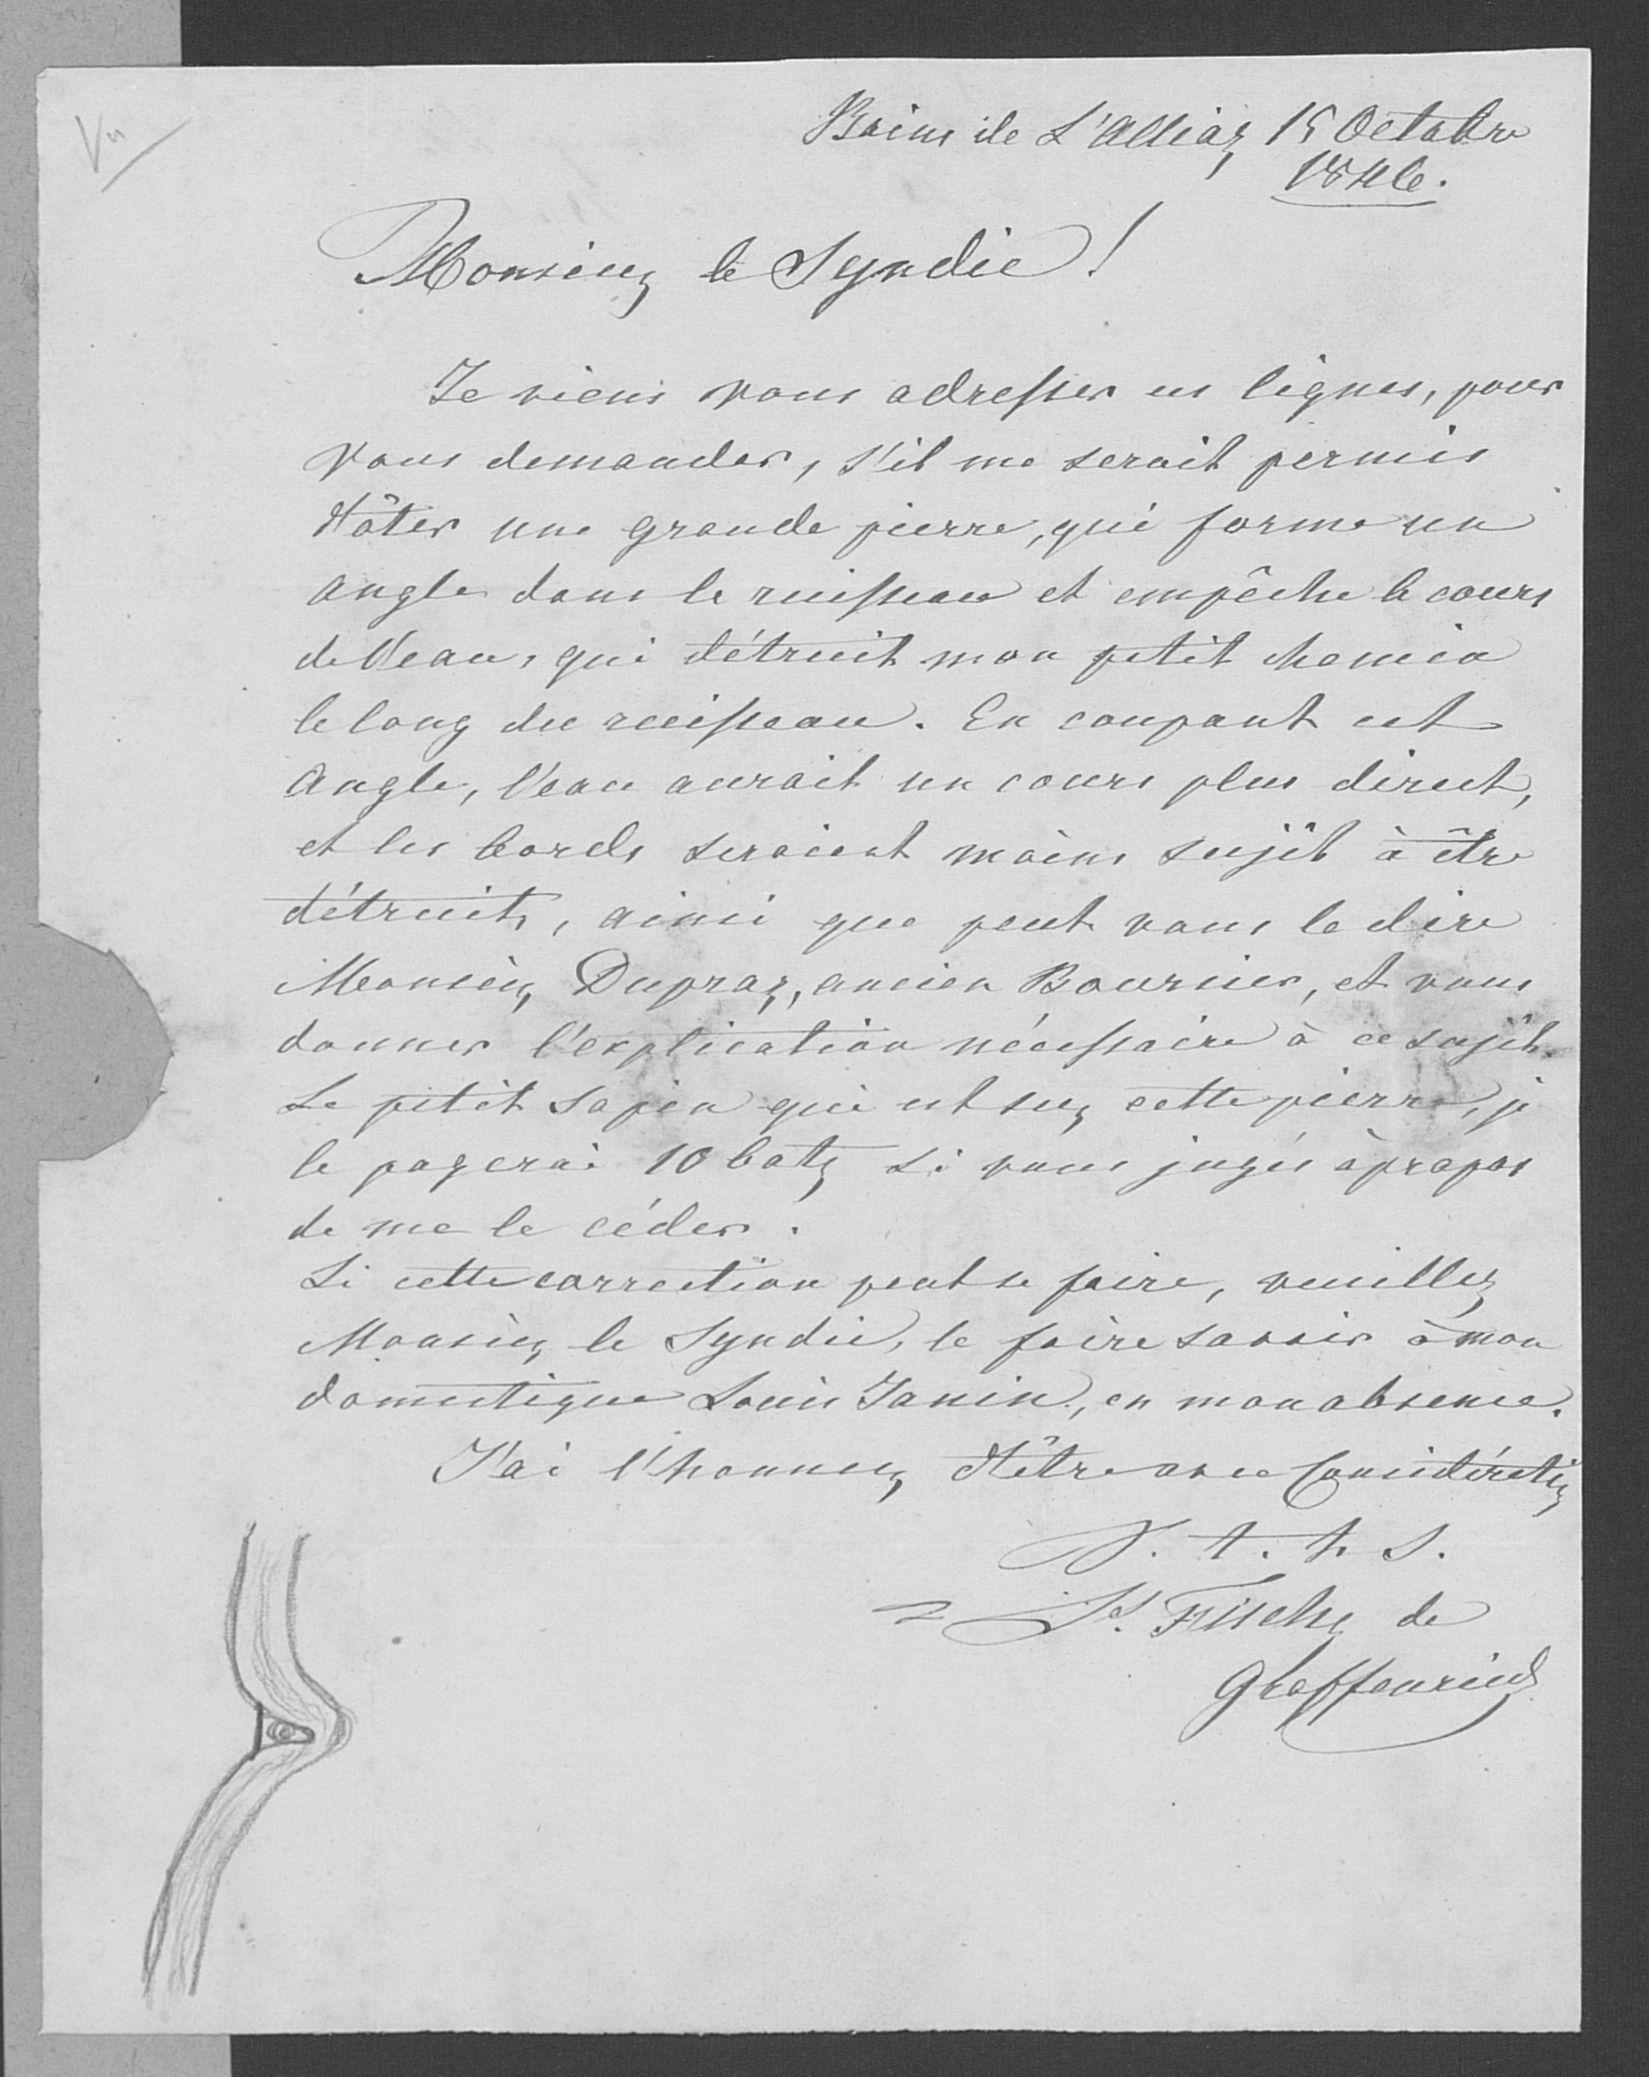 Vu
Bains de L'Alliaz 15 Octobre
1846.
Monsieur le Syndic!
Je viens vous adresser ces lignes, pour
vous demander, s'il me serait permis
d'ôter une grande pierre, qui forme un
angle dans le ruisseau et empêche le cours
de l'eau, qui détruit mon petit chemin
le long du ruisseau. En coupant cet
angle, l'eau aurait un cours plus direct,
et les bords seraient moins sujèt à être
détruits, ainsi que peut vous le dire
Monsieur Dupraz, ancien Boursier, et vous
donner l'explication nécessaire à ce sujèt.
Le petit sapin qui est sur cette pierre, je
le payerai 10 batz si vous jugés àpropos
de me le céder.
Si cette correction peut se faire, veuillez
Monsieur le Syndic, le faire savoir à mon
domestique Louis Janin, en mon absence.
J'ai l'honneur d'être avec Considération
V. t. h. S.
Fischer de
Greffenried